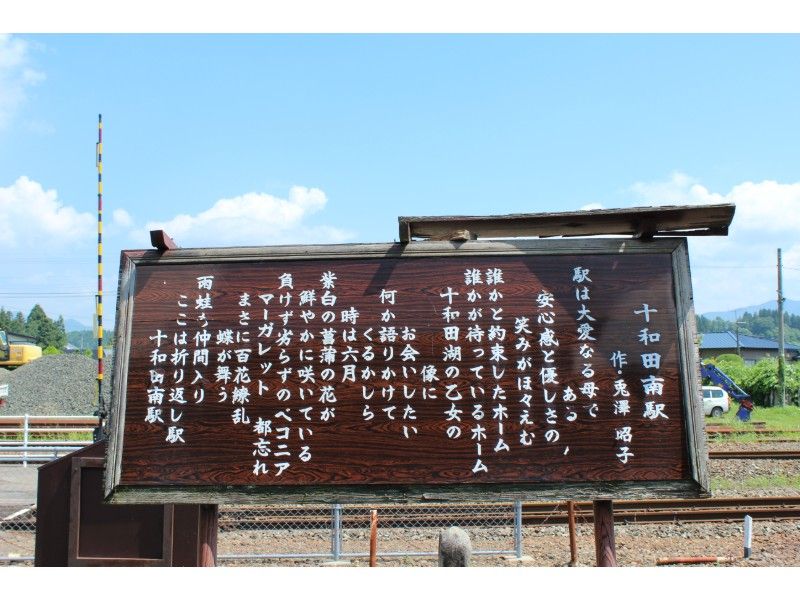 十和田南駅
作・兎澤 昭子
駅は大愛なる母で
ある
安心感と優しさの、
笑みがほゝえむ
誰かと約束したホーム
誰かが待っているホーム
十和田湖の乙女の
像に
お会いしたい
何か語りかけて
くるかしら
時は六月
紫白の菖蒲の花が
鮮やかに咲いている
負けず劣らずのベコニア
マーガレット 都忘れ
まさに百花繚乱
蝶が舞う
雨蛙も仲間入り
ここは折り返し駅
十和田南駅